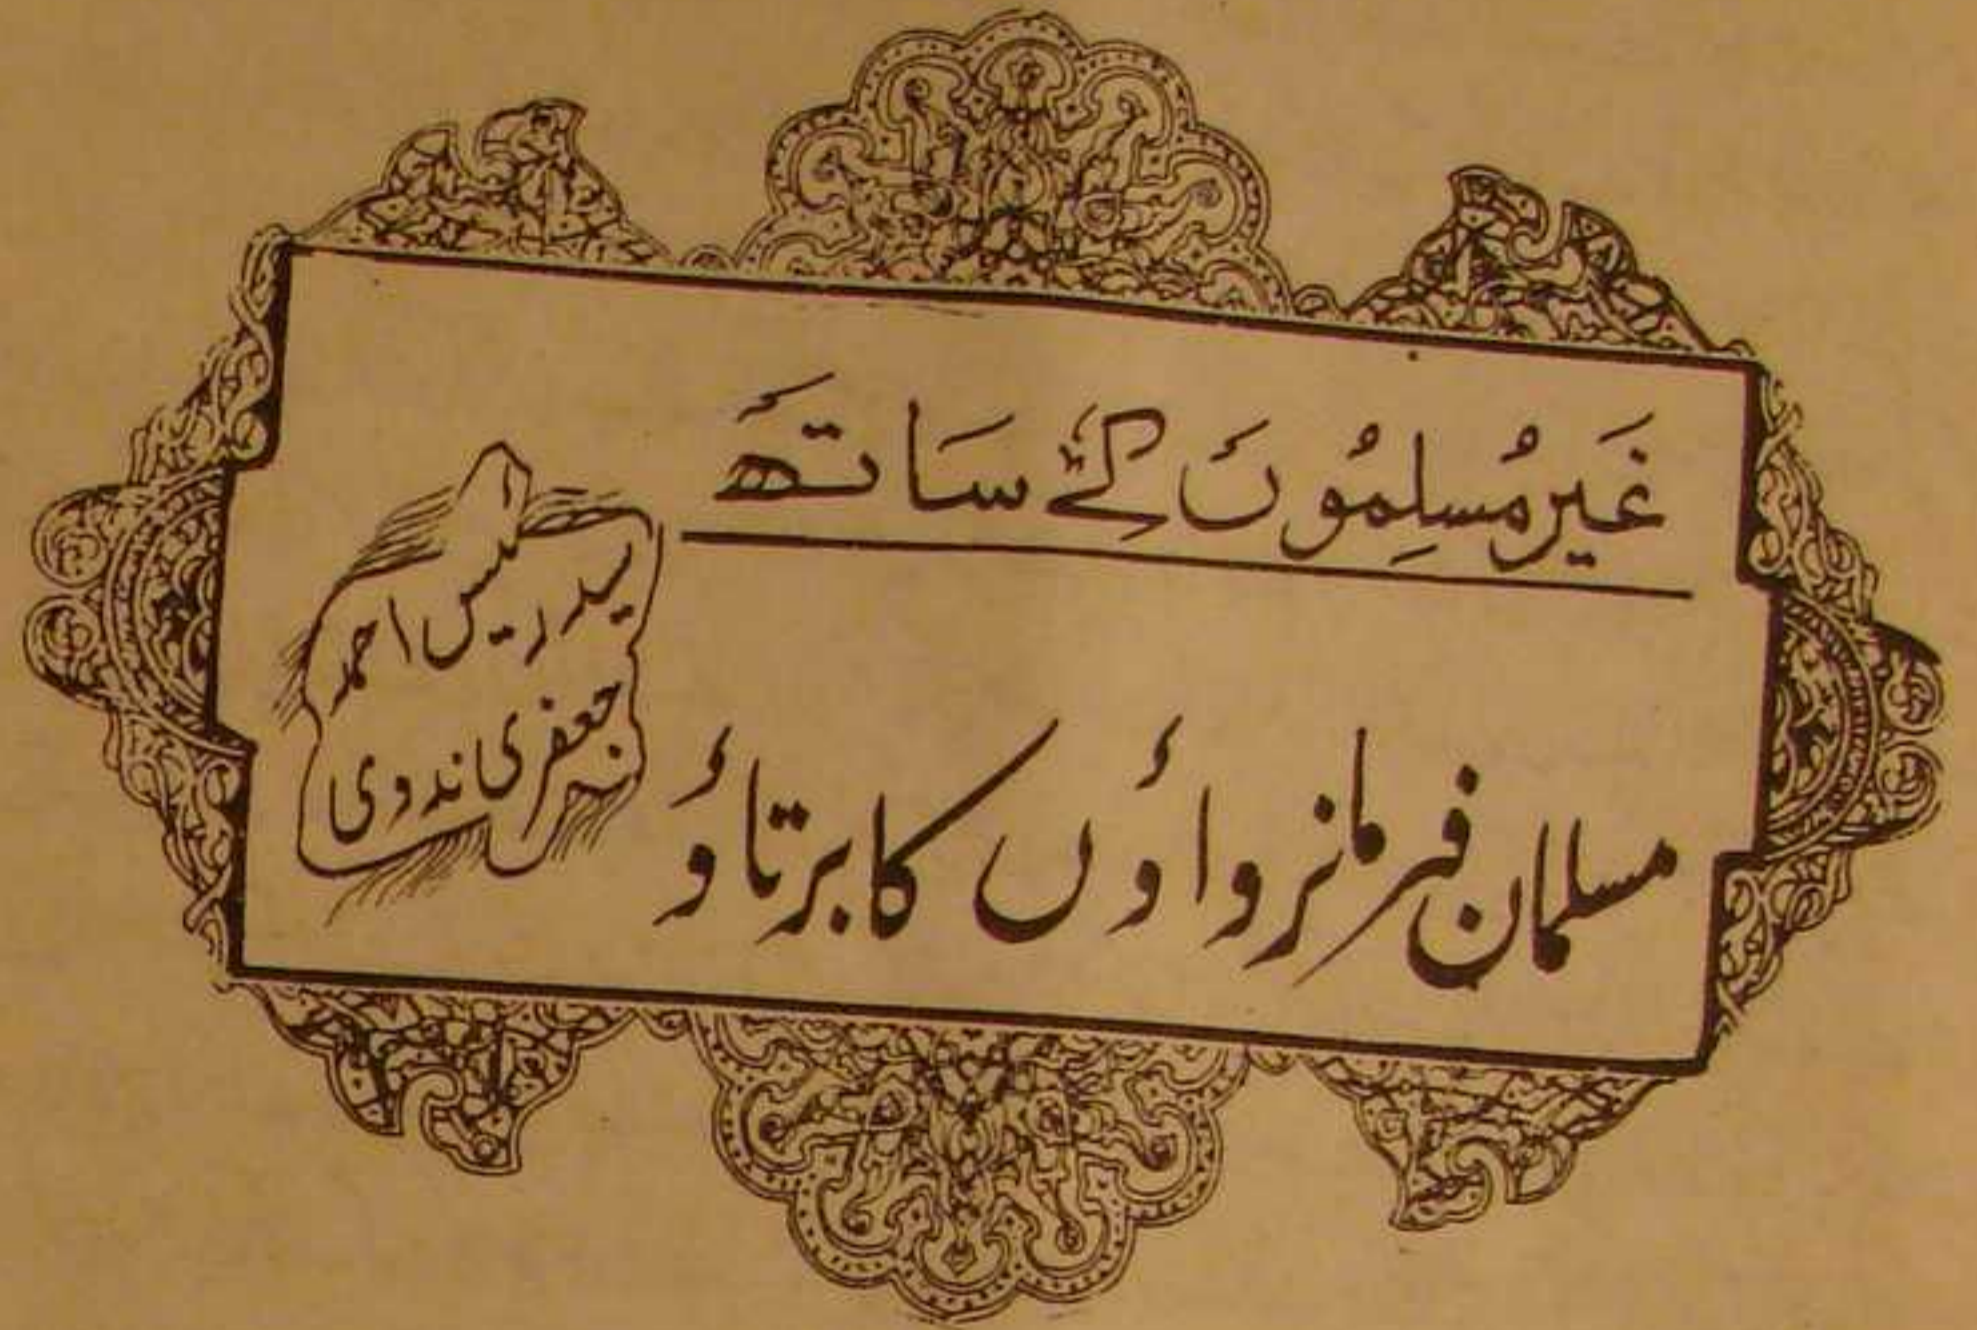 غَیر مُسلِمُوں کے سَاتَھ
مسلمان فرمانرواؤں کا برتاؤ
سید رئیس احمد
جعفری ندوی